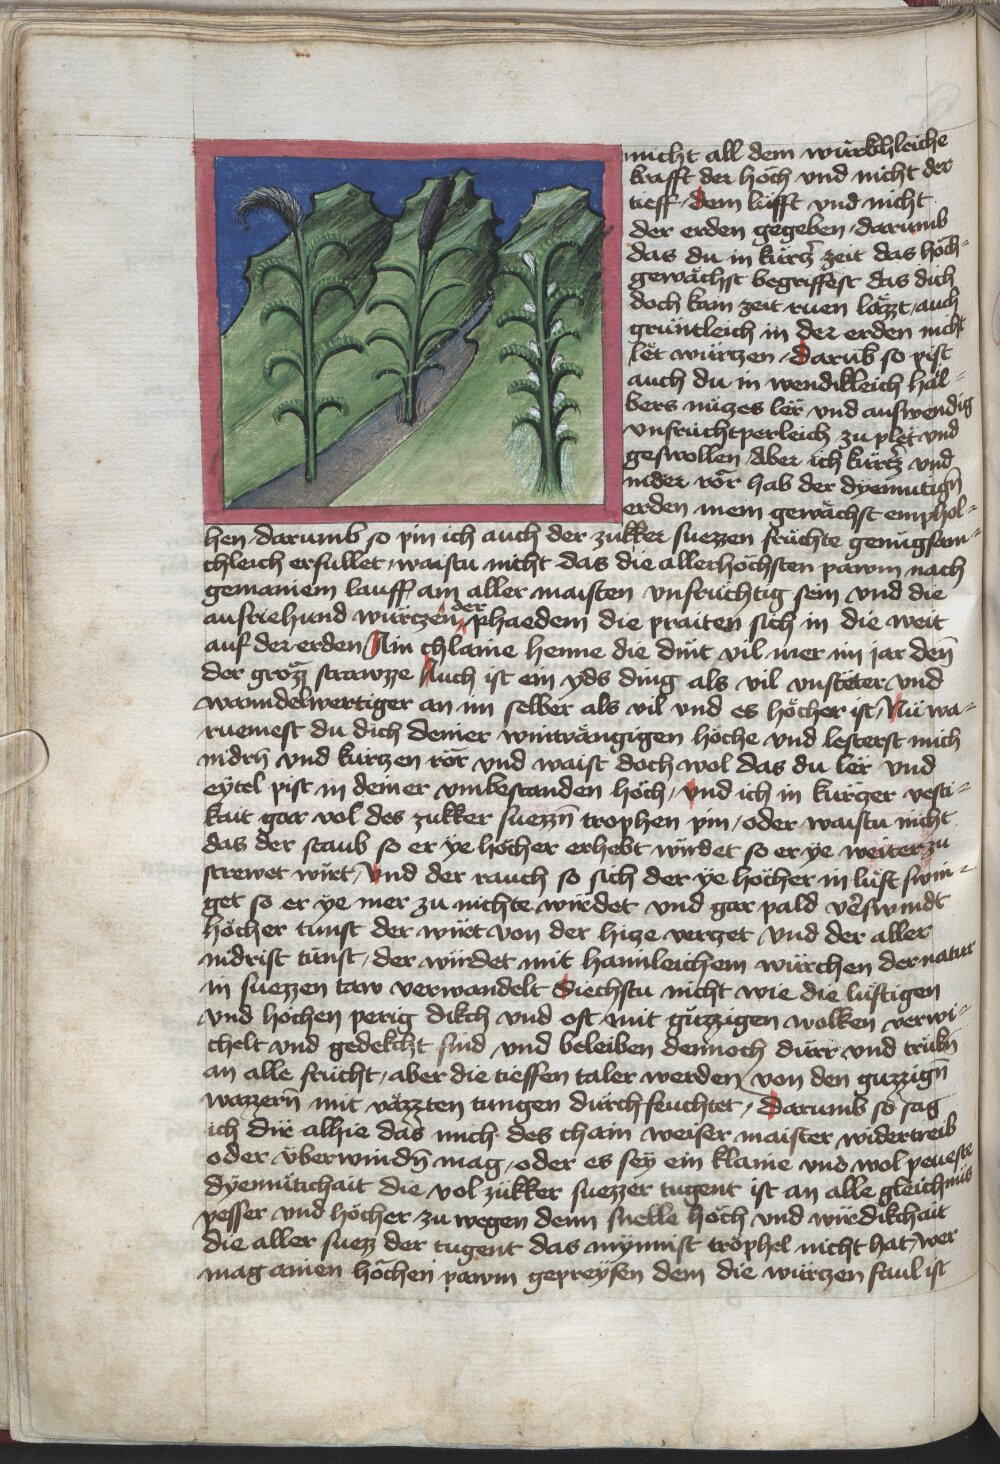 nicht all dem würkchleiche
krafft der höch vnd nicht der
tieff / Dem lufft vnd nicht
der erden gegeben / darumb
das du in kurcz̄ zeit das höch=
gewächst begriffest das dich
doch kain zeit ruen läzzt / auch
grüntleich in der erden nicht
let würtzen / Darūb so pist
auch du in wendikleich hal=
bers nüczes ler vnd auswendig
vnfruchtperleich zu plet vnd
geswollen / Aber ich kurcz̄ vnd
nider rör hab der dyemutign̄
erden mein gewächst emphol=
hen / darumb so pin ich auch der zukker suezzen früchte genügsam=
chleich erfullet / waistu nicht das die allerhöchsten pawm nach
gemainem lauff am aller maisten vnfruchtig sein vnd die
aufziehund würtzen der phaedem die praiten sich in die weit
auf der erden / Ain chlaine henne die duit vil mer im jar den̄
der groz̄z strawzze / Auch ist ein yds ding als vil vnstëter vnd
wanndelwertiger an im selber als vil vnd es höcher ist / Nü wa=
ruemest du dich deiner wintvängigen höche vnd lesterst mich
nidrn̄ vnd kurtzen rör vnd waist doch wol das du ler vnd
eytel pist in deiner vmbestanden höch / vnd ich in kurczer vesti=
kait gar vol des zukker suezzn̄ trophen pin / oder waistu nicht
das der staub so er ye höcher erhebt wirdet so er ye weiter zu
strewet wirt / Vnd der rauch so sich der ye höcher in luft swin=
get so er ye mer zu nichte wirdet vnd gar pald verswindt
höcher tünst der wirt von der hicze verzet / Vnd der aller
nidrist tünst / der wirdet mit haimleichem würchen der natur
in suezzen taw verwandelt Siechstu nicht wie die lüftigen
vnd hochen perig dikch vnd oft mit güzzigen wolken verwi=
chelt vnd gedekcht sind vnd beleiben dennoch dürr vnd trükn̄
an alle frücht / aber die tieffen taler werden von den guzzign̄
wazzern̄ mit räzzten tungen dürchfeuchtet / Darumb so sag
ich dir alhie das mich des chain weiser maister widertreib
oder vberwindn̄ mag / oder es sey ein klaine vnd wol peueste
dyemütichait die vol zukker suezzer tugent ist an alle gleichnüs
pesser vnd höcher zu wegen denn snelle höch vnd wirdikchait
die aller suezz der tugent das mynnist tröphel nicht hat / wer
mag ainen höchen pawm gepreysen dem die würtzen faul ist